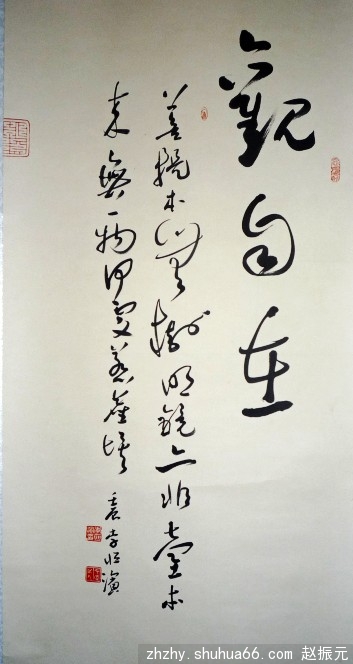 觀自在
菩提本無樹明鏡亦非臺本
來無一物何處惹塵埃
zhzhy.shuhua66.com 赵振元